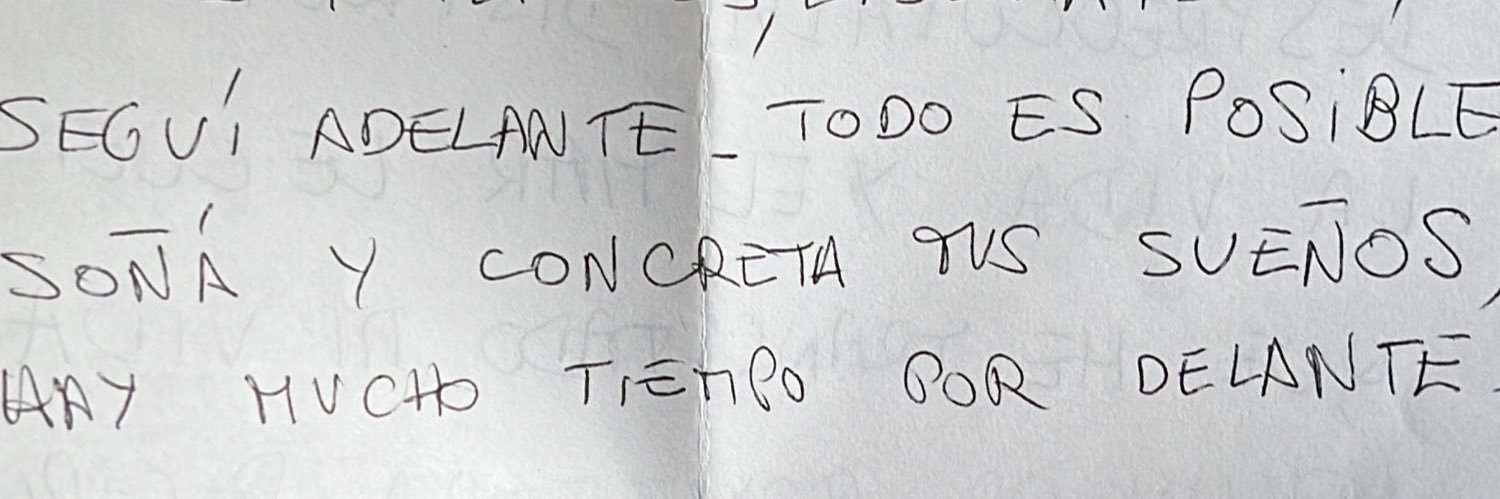 SEGUÍ ADELANTE_ TODO ES POSIBLE
SOÑÁ Y CONCRETA TUS SUEÑOS,
HAY MUCHO TIEMPO POR DELANTE.